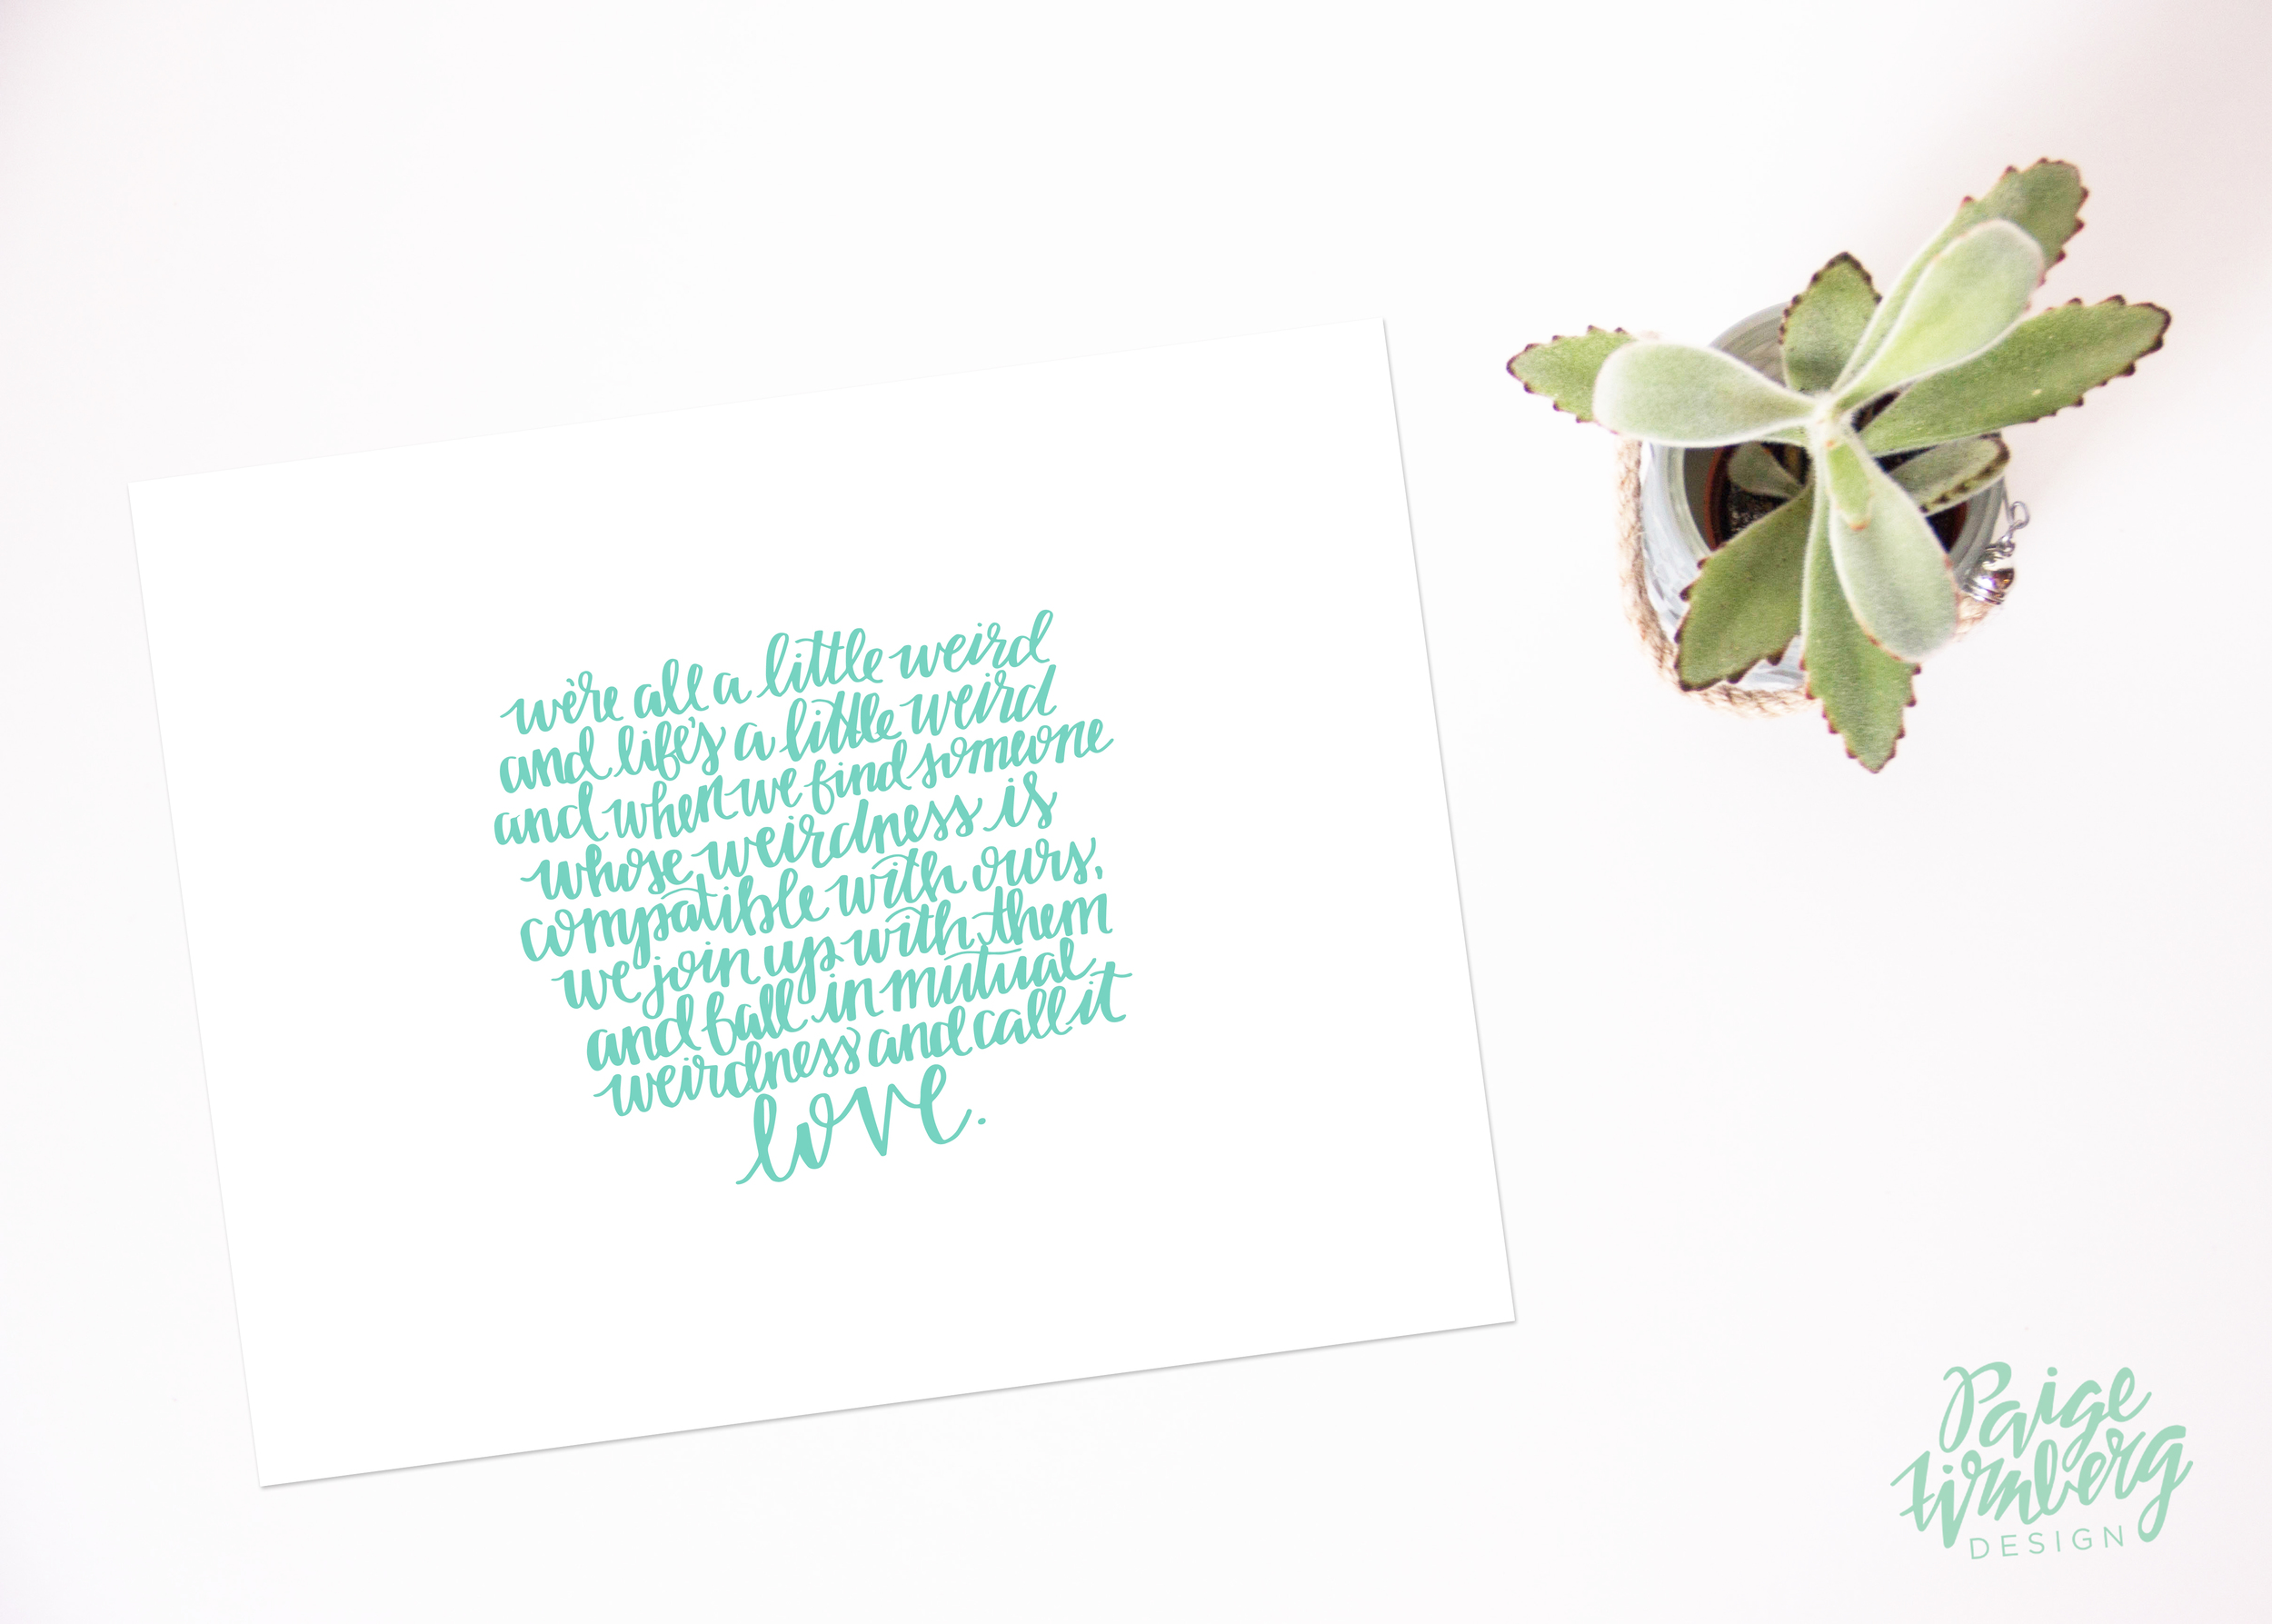 we're all a little weird
and life's a little weird
and when we find someone
whose weirdness is
compatible with ours,
we join up with them
and fall in mutual
weirdness and call it
love.
Paige
Firnberg
DESIGN